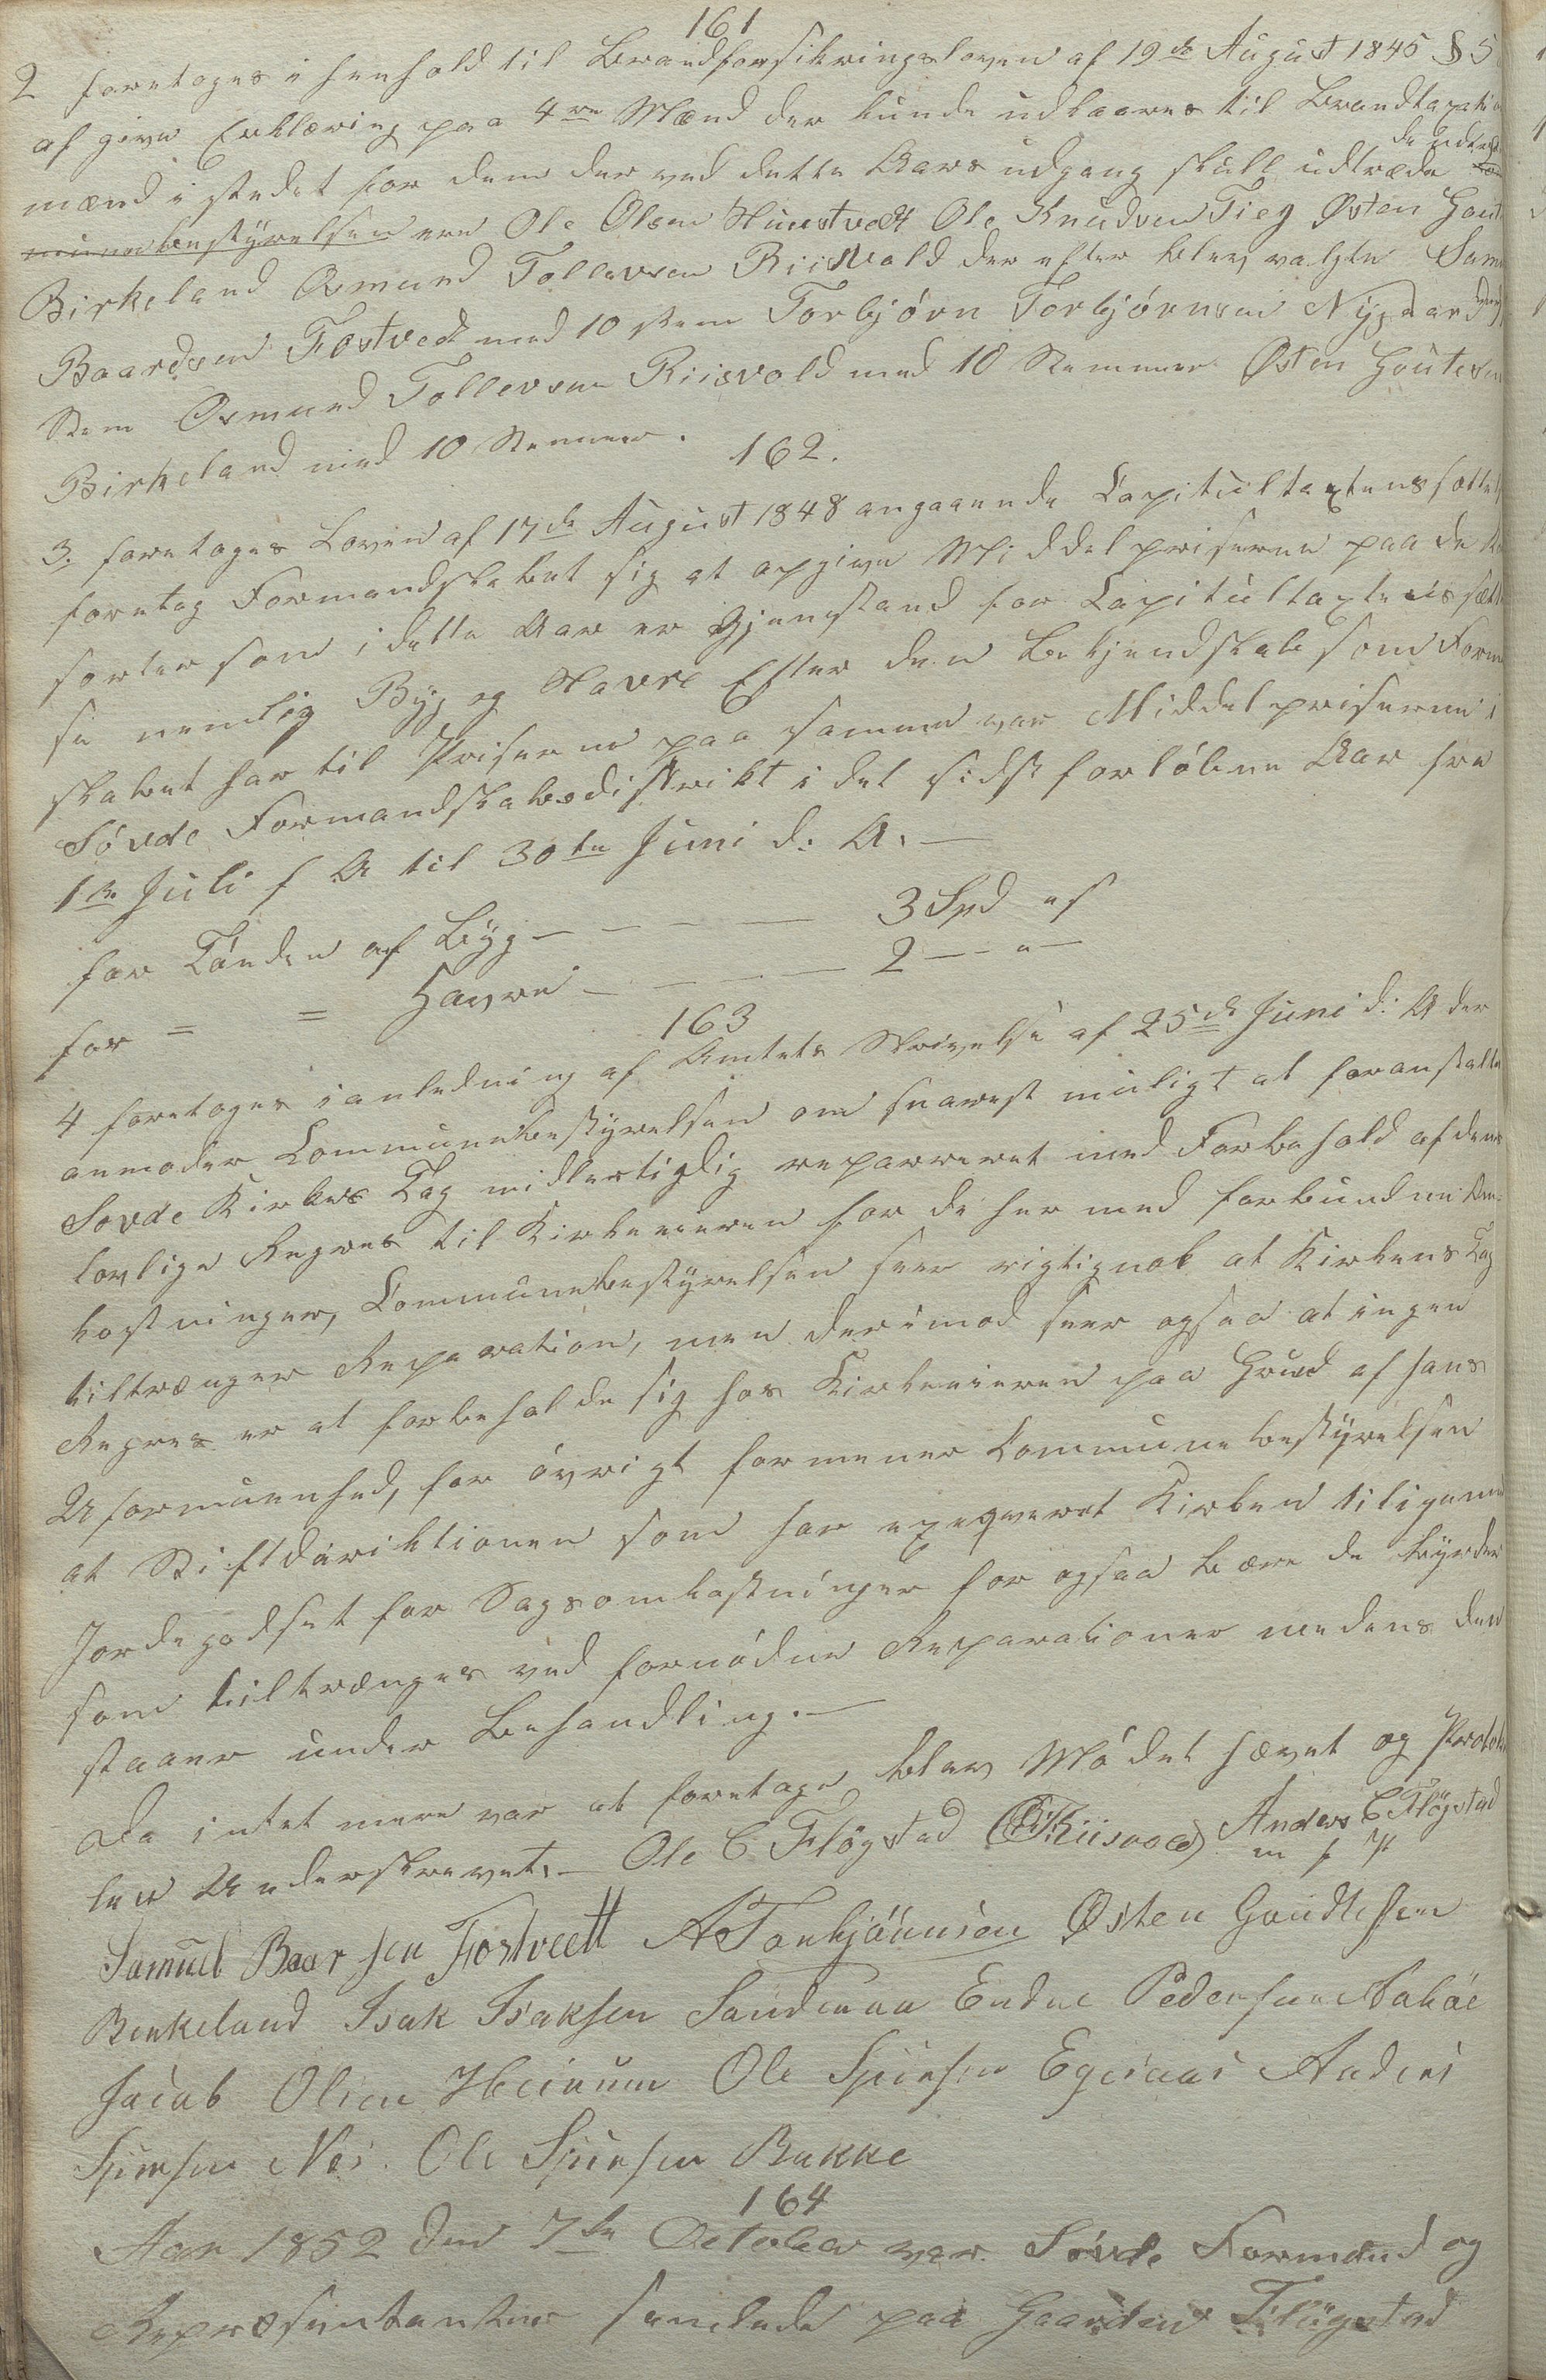 161
2 foretoges i henhold til Brandforsikringsloven af 19de August 1845 § 5
af give Erklæring paa 4re Mænd der kunde udkaares til Brandtaxations
mænd i stedet for dem der ved dette Aars udgang skull udtræde de udtrædende
munebestyrelsen ere Ole Olsen Hustvedt Ole Knudsen Tieg Østen Goute
Birkeland Osmund Tollevsen Riisvold der efter blev valgte Samuel
Baardsen Fostvedt med 10 stem Torbjörn Torbjörnsen Nygaard
Stem Osmund Tollevsen Riisvold med 10 Stemmer Østen Goutesen
Birkeland med 10 Stemmer.
162.
3. foretoges Loven af 17de August 1848 angaaende Capitultaxtens sættelse
foretog Formandskabet sig at opgive Middelpriserne paa de Korn
sorter som i dette Aar er Gjenstand for Capitultaxtens sættel
se nemlig Byg og Havre Efter den Bekjendskab som Formand
skabet har til Priserne paa samme var Middelpriserne i
Søvde Formandskabsdistrikt i det sidst forløbne Aar fra
1ste Juli f A til 30te Juni d: A. —
for Tønden af Byg — — — — 3 Spd
for = = Havre — — — — 2 — " —
163
4 foretoges i anledning af Amtets Skrivelse af 25de Juni d: A der
anmoder Communebestyrelsen om snarest muligt at foranstalte
Sovde Kirkes Tag midlertigdig reparreret med Forbehold af den
lovlige Regres til Kirkeeieren for de her med forbundne Om
kostninger, Communebestyrelsen seer rigtignok at Kirkens Tag
tiltrænger Reparation, men derimod seer ogsaa at ingen
Regres er at forbeholde sig hos Kirkeeieren paa Grund af hans
Uformuenhed, for øvrigt formener Communebestyrelsen
at Stiftdiriktionen som har exeqveret Kirken tiligemed
Jordegodset for Sagsomkostninger for ogsaa bære de byrder
som tiltrænges ved fornødne Reparationer medens den
staaer under Behandling. —
Da intet mere var at foretage blev Mødet hævet og Protokol
len Underskrevet. — Ole C Flögstad Riisvold Anders C Flögstad
m f P
Samuel Baarsen Fostvedt A Torbjörnsen Østen Goudtesen
Berkeland Isak Isaksen Sandmun Endre Pedersen
Jacob Olsen Heinum Ole Sjursen Egenaes Anders
Sjursen Nes. Ole Sjursen Bakke
164
Aar 1852 den 7de October var Sövde Formænd og
Repræsentanter samlede paa Gaarden Flögstad